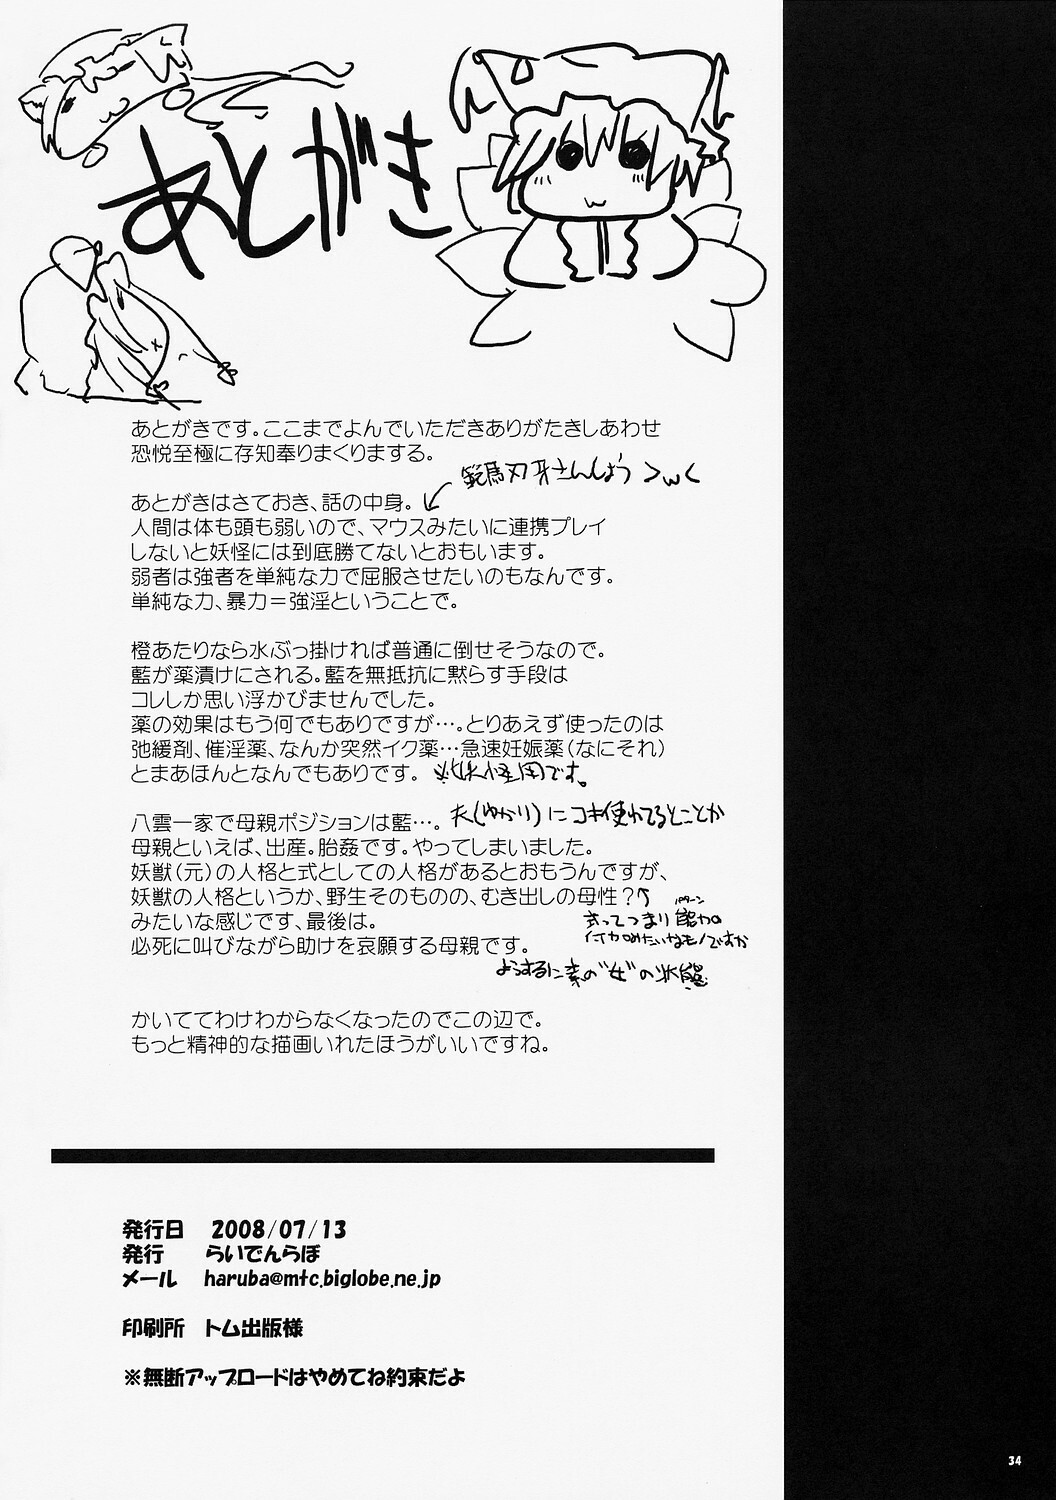 あとがき
あとがきです。ここまでよんでいただきありがたきしあわせ
恐悦至極に存知奉りまくりまする。
範馬刃牙さんしょう ＞ｗ＜
あとがきはさておき、話の中身。
人間は体も頭も弱いので、マウスみたいに連携プレイ
しないと妖怪には到底勝てないとおもいます。
弱者は強者を単純な力で屈服させたいのもなんです。
単純な力、暴力＝強淫ということで。
橙あたりなら水ぶっ掛ければ普通に倒せそうなので。
藍が薬漬けにされる。藍を無抵抗に黙らす手段は
コレしか思い浮かびませんでした。
薬の効果はもう何でもありですが…。とりあえず使ったのは
弛緩剤、催淫薬、なんか突然イク薬…急速妊娠薬（なにそれ）
とまあほんとなんでもありです。 ※妖怪用です。
八雲一家で母親ポジションは藍…。 夫（ゆかり）にコキ使われてるとことか
母親といえば、出産。胎姦です。やってしまいました。
妖獣（元）の人格と式としての人格があるとおもうんですが、
妖獣の人格というか、野生そのものの、むき出しの母性？
みたいな感じです、最後は。
式ってつまり能力の
パターン
付加みたいなモノですか
必死に叫びながら助けを哀願する母親です。
ようするに素の“女”の状態
かいててわけわからなくなったのでこの辺で。
もっと精神的な描画いれたほうがいいですね。
発行日 2008/07/13
発行 らいでんらぼ
メール haruba@mtc.biglobe.ne.jp
印刷所 トム出版様
※無断アップロードはやめてね約束だよ
34